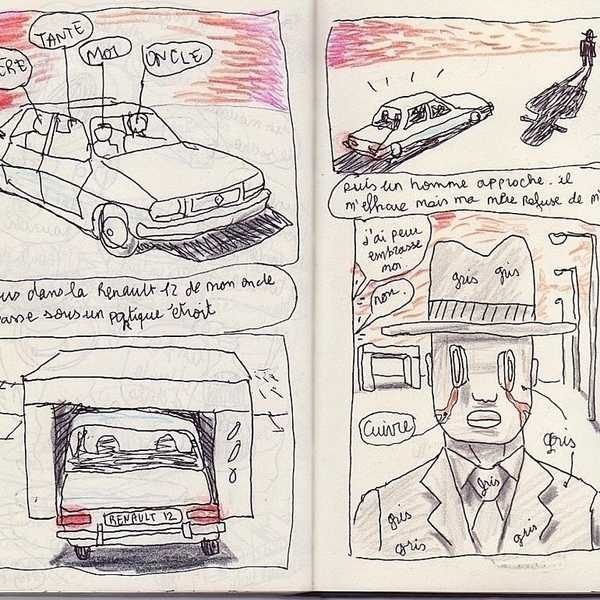 TANTE
MOI
ONCLE
dans la Renault 12 de mon oncle
sous un portique étroit
RENAULT 12
puis un homme approche. il
m'effraie mais ma mère refuse de
j'ai peur
embrasse
moi
non.
gris gris
Cuivre
gris
gris
gris
gris
gris